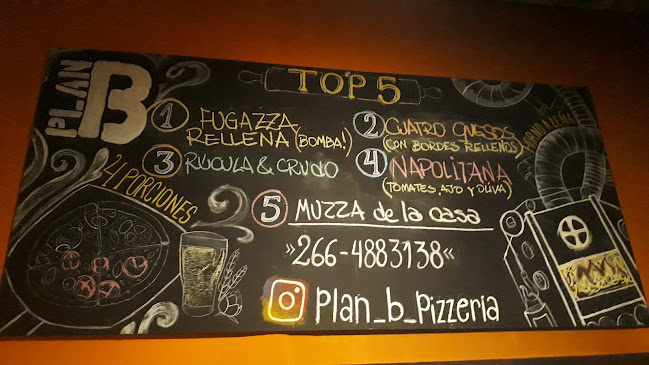 PLAN B
TOP 5
1 FUGAZZA
RELLENA (BOMBA!)
2 CUATRO QUESOS
(CON BORDES RELLENOS)
3 RÚCULA & CRUDO
4 NAPOLITANA
(TOMATES AJO y OLIVA)
5 MUZZA de la casa
4 PORCIONES
HORNO A LEÑA
»266-4883138«
Plan_b_Pizzeria